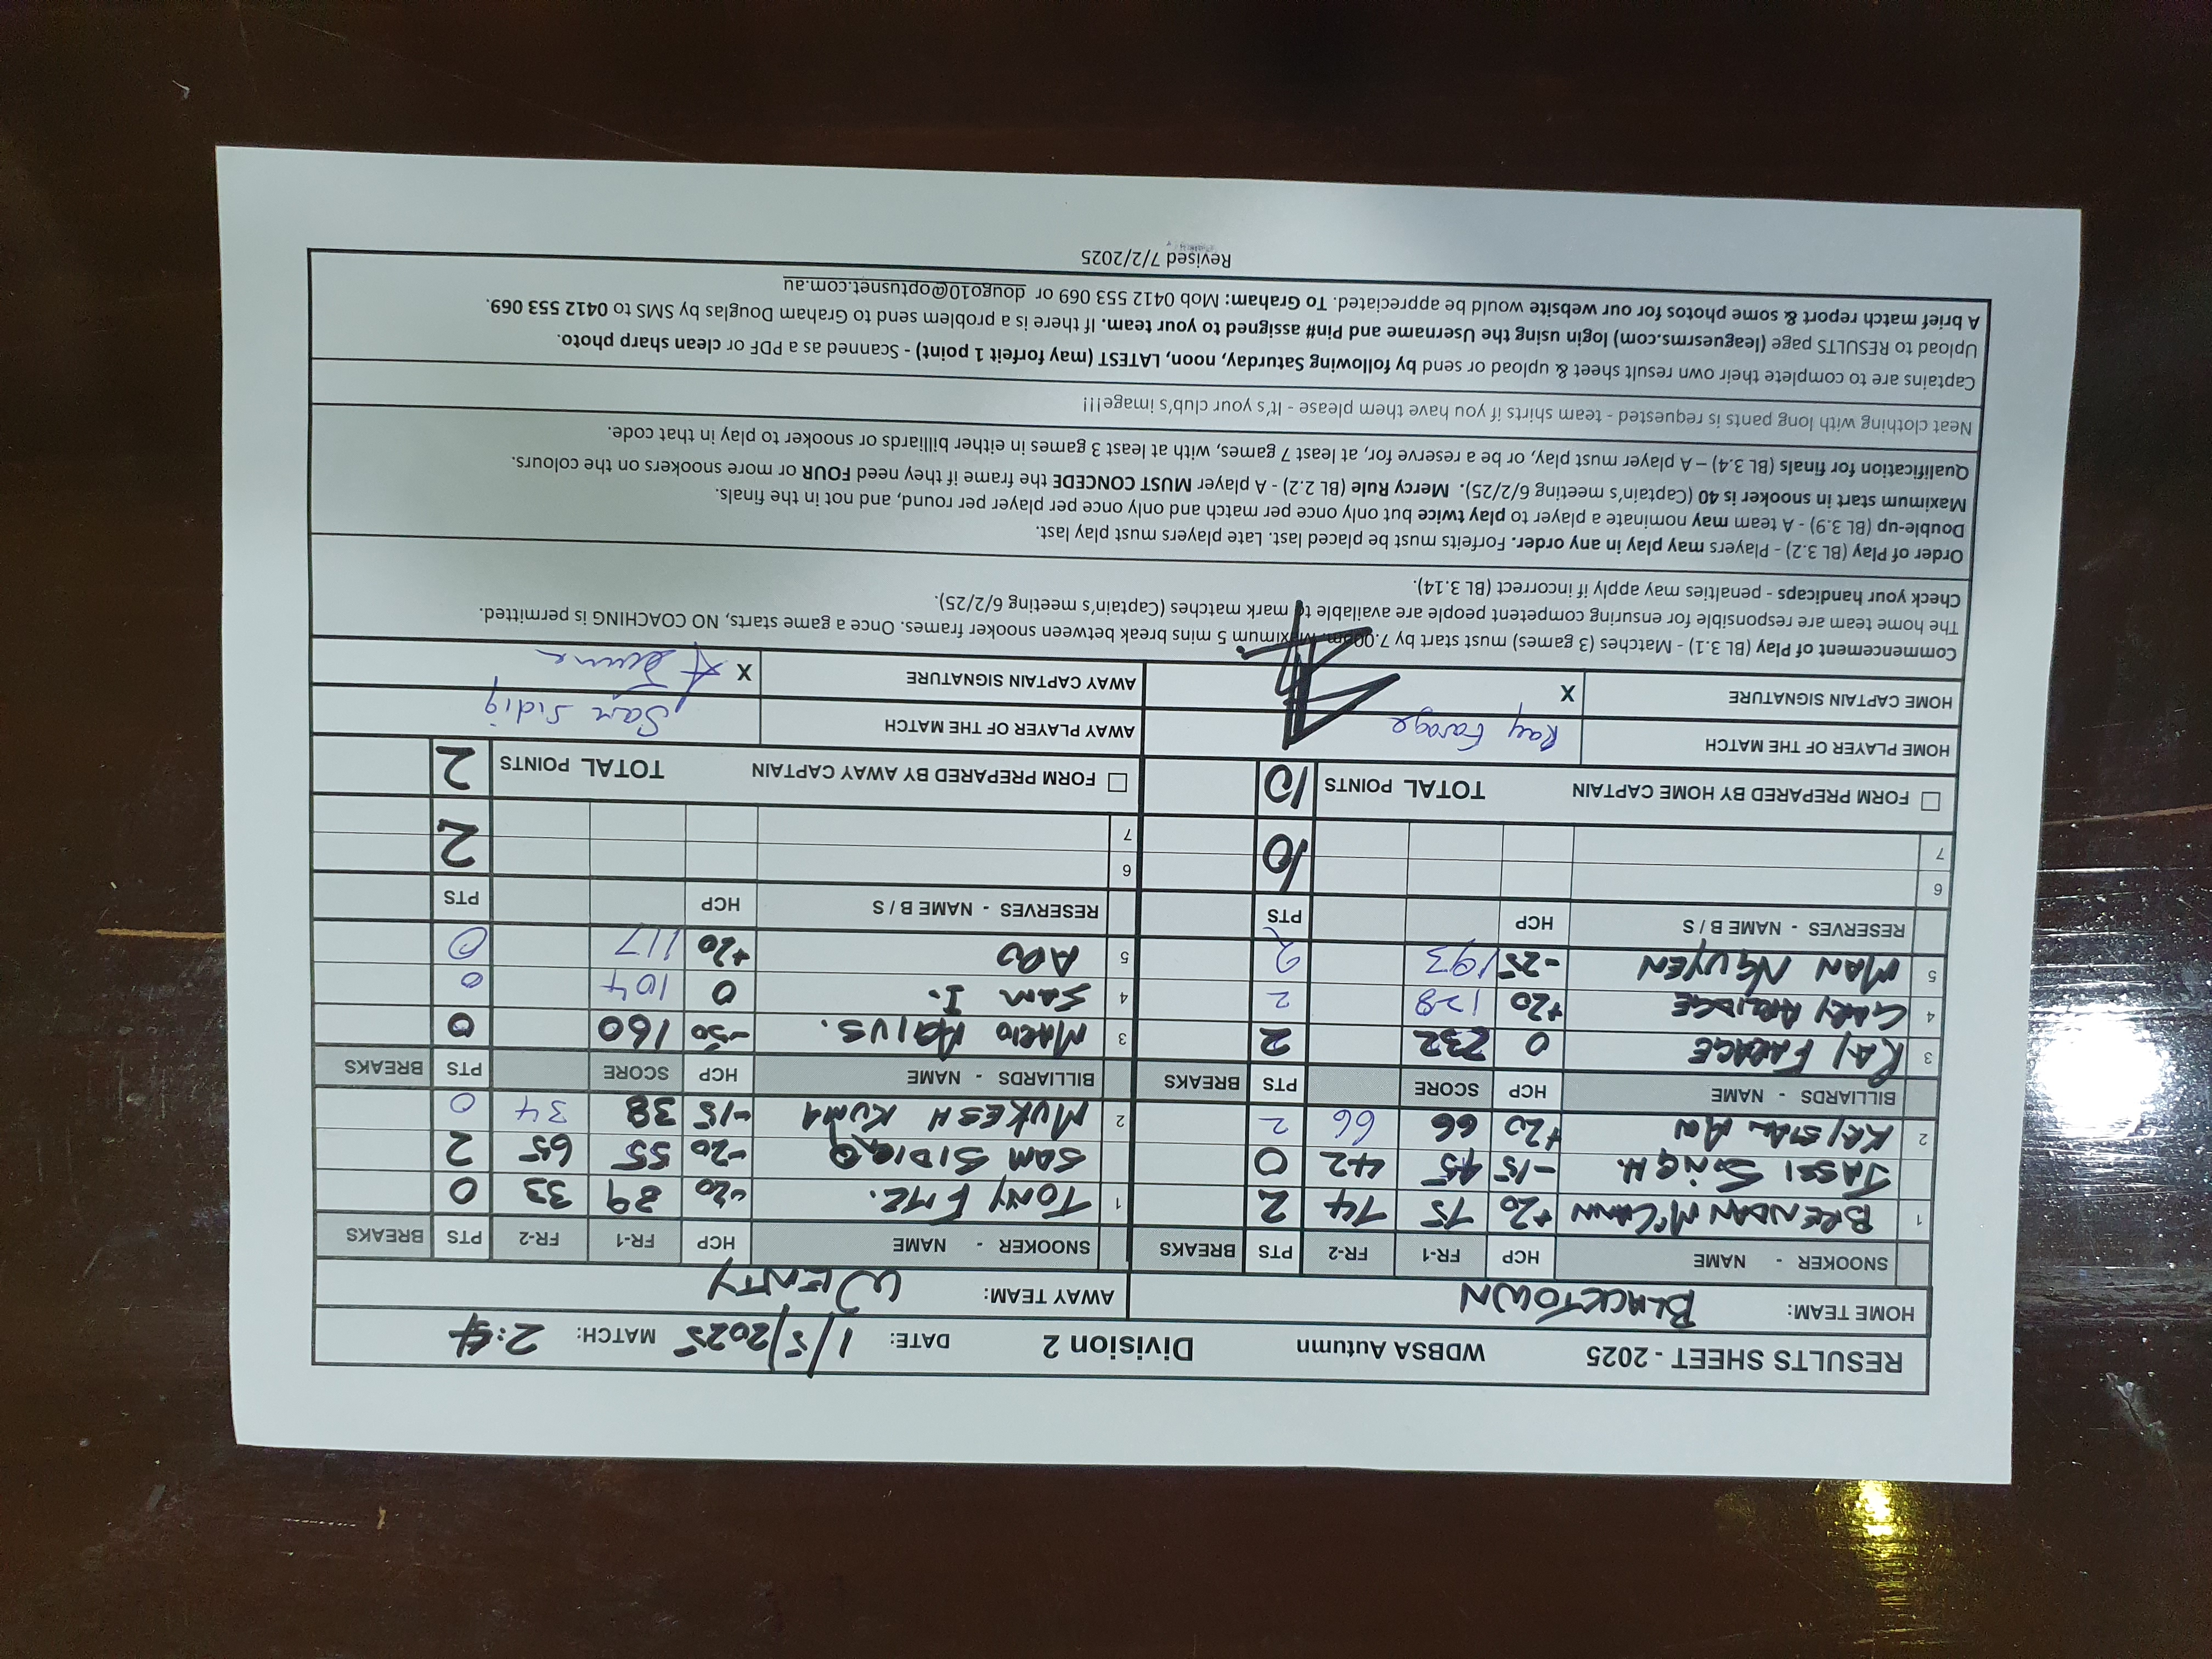 RESULTS SHEET - 2025 WDBSA Autumn Division 2 DATE: 1/5/2025 MATCH: 2:4
HOME TEAM: BLACKTOWN AWAY TEAM: WENTY
SNOOKER - NAME HCP FR-1 FR-2 PTS BREAKS SNOOKER - NAME HCP FR-1 FR-2 PTS BREAKS
1 BRENDAN McCANN +20 75 74 2 1 TONY FME. -20 39 33 0
JASSI SINGH -15 45 42 0 SAM SIDIQ -20 55 65 2
2 +20 66 66 2 2 MUKESH KUMA -15 38 34 0
BILLIARDS - NAME HCP SCORE PTS BREAKS BILLIARDS - NAME HCP SCORE PTS BREAKS
3 RAY FARAGE 0 232 2 3 MARIO -50 160 0
4 GARY +20 128 2 4 SAM I. 0 104 0
5 MAN NGUYEN -25 193 2 5 +20 117 0
RESERVES - NAME B / S HCP PTS RESERVES - NAME B / S HCP PTS
6 10 6 2
7 7
FORM PREPARED BY HOME CAPTAIN TOTAL POINTS 10 FORM PREPARED BY AWAY CAPTAIN TOTAL POINTS 2
HOME PLAYER OF THE MATCH Ray Farage AWAY PLAYER OF THE MATCH Sam Sidiq
HOME CAPTAIN SIGNATURE X AWAY CAPTAIN SIGNATURE X
Commencement of Play (BL 3.1) - Matches (3 games) must start by 7.00pm. Maximum 5 mins break between snooker frames. Once a game starts, NO COACHING is permitted.
The home team are responsible for ensuring competent people are available to mark matches (Captain's meeting 6/2/25).
Check your handicaps - penalties may apply if incorrect (BL 3.14).
Order of Play (BL 3.2) - Players may play in any order. Forfeits must be placed last. Late players must play last.
Double-up (BL 3.9) - A team may nominate a player to play twice but only once per match and only once per player per round, and not in the finals.
Maximum start in snooker is 40 (Captain's meeting 6/2/25). Mercy Rule (BL 2.2) - A player MUST CONCEDE the frame if they need FOUR or more snookers on the colours.
Qualification for finals (BL 3.4) – A player must play, or be a reserve for, at least 7 games, with at least 3 games in either billiards or snooker to play in that code.
Neat clothing with long pants is requested - team shirts if you have them please - It's your club's image!!!
Captains are to complete their own result sheet & upload or send by following Saturday, noon, LATEST (may forfeit 1 point) - Scanned as a PDF or clean sharp photo.
Upload to RESULTS page (leaguesrms.com) login using the Username and Pin# assigned to your team. If there is a problem send to Graham Douglas by SMS to 0412 553 069.
A brief match report & some photos for our website would be appreciated. To Graham: Mob 0412 553 069 or dougo10@optusnet.com.au
Revised 7/2/2025